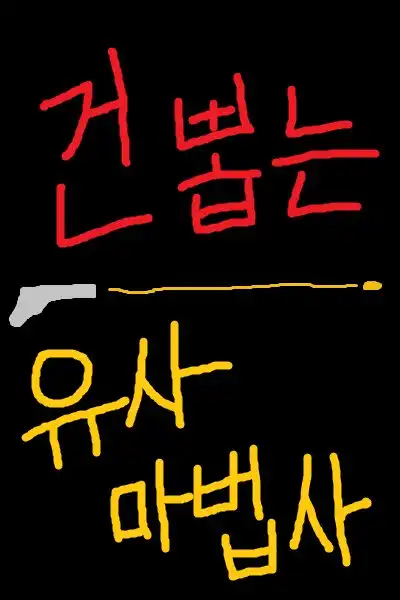 건 뽑는
유사
마법사